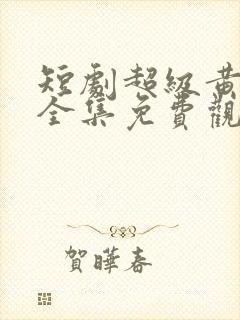 短劇超級黃
全集免費觀
賀曄春